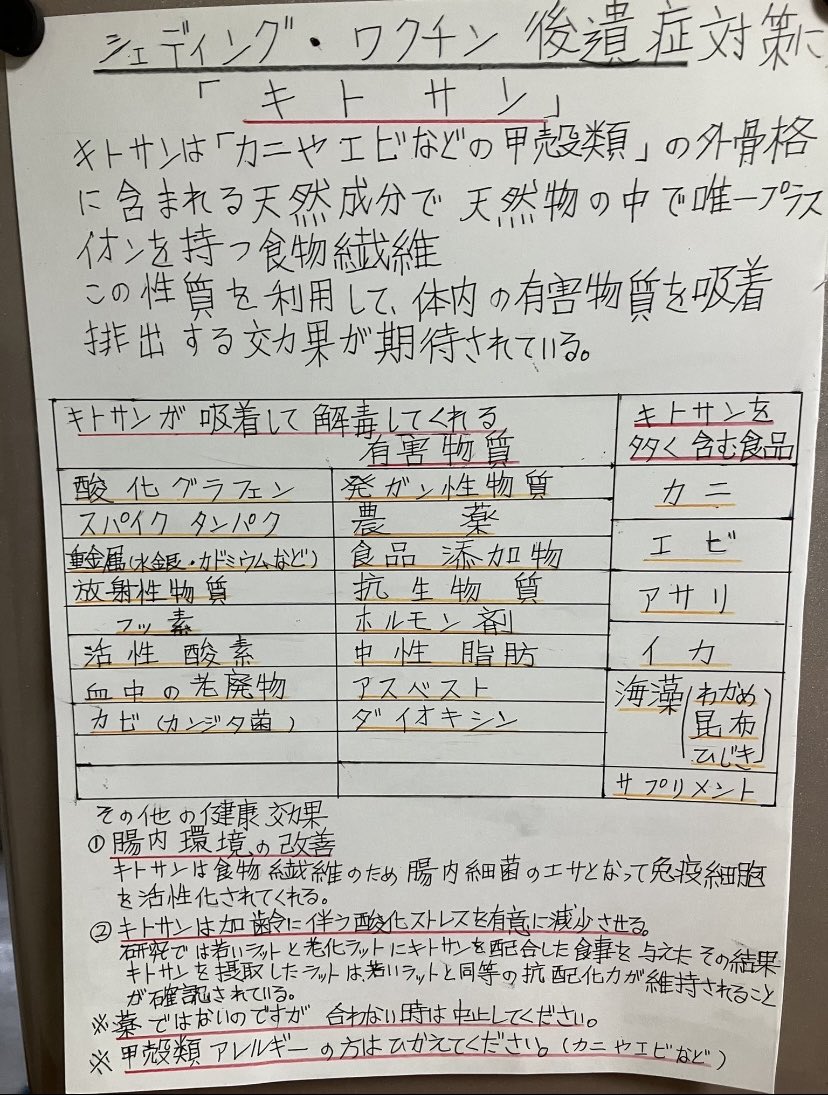 シェディング・ワクチン後遺症対策に
「キトサン」
キトサンは「カニやエビなどの甲殻類」の外骨格
に含まれる天然成分で天然物の中で唯一プラス
イオンを持つ食物繊維
この性質を利用して、体内の有害物質を吸着
排出する効果が期待されている。
キトサンが吸着して解毒してくれる
有害物質
キトサンを
多く含む食品
酸化グラフェン 発ガン性物質 カニ
スパイクタンパク 農薬
重金属(水銀・カドミウムなど) 食品添加物 エビ
放射性物質 抗生物質 アサリ
フッ素 ホルモン剤
活性酸素 中性脂肪 イカ
血中の老廃物 アスベスト 海藻(わかめ
カビ(カンジタ菌) ダイオキシン 昆布
ひじき)
サプリメント
その他の健康効果
①腸内環境の改善
キトサンは食物繊維のため腸内細菌のエサとなって免疫細胞
を活性化されてくれる。
②キトサンは加齢に伴う酸化ストレスを有意に減少させる。
研究では若いラットと老化ラットにキトサンを配合した食事を与えたその結果
キトサンを摂取したラットは若いラットと同等の抗配化力が維持されること
が確認されている。
※薬ではないのですが合わない時は中止してください。
※甲殻類アレルギーの方はひかえてください。(カニやエビなど)